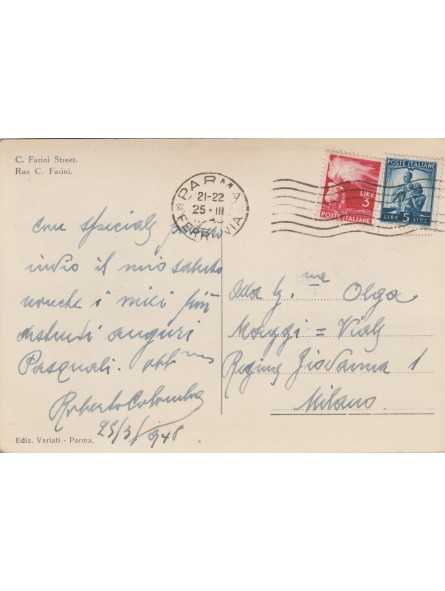 C. Farini Street.
Rue C. Farini.
PARMA
21-22
25·III
FERROVIA
LIRE 3
POSTE ITALIANE
POSTE ITALIANE
LIRE 5
con speciale
invio il mio saluto
nonché i miei più
distinti auguri
Pasquali. obb.mo
Roberto Colombo
25/3/1948
Ediz. Variati - Parma.
Alla G.ma Olga
Maggi = Viale
Regina Giovanna 1
Milano